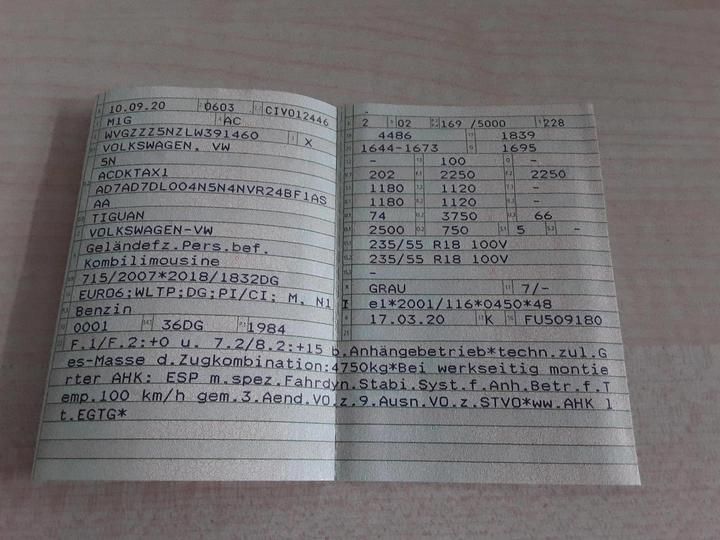 10.09.20 0603 CIV012446
M1G AC
WVGZZZ5NZLW391460 X
VOLKSWAGEN, VW
5N
ACDKTAX1
AD7AD7DL004N5N4NVR24BF1AS
AA
TIGUAN
VOLKSWAGEN-VW
Geländefz.Pers.bef.
Kombilimousine
715/2007*2018/1832DG
EURO6;WLTP;DG;PI/CI; M, N1 I
Benzin
0001 36DG 1984
-
2 02 169 /5000 228
4486 1839
1644-1673 1695
- 100 -
202 2250 2250
1180 1120 -
1180 1120 -
74 3750 66
2500 750 5 -
235/55 R18 100V
235/55 R18 100V
-
GRAU 7/-
e1*2001/116*0450*48
17.03.20 K FU509180
F.1/F.2:+0 u. 7.2/8.2:+15 b.Anhängebetrieb*techn.zul.G
es-Masse d.Zugkombination:4750kg*Bei werkseitig montie
rter AHK: ESP m.spez.Fahrdyn.Stabi.Syst.f.Anh.Betr.f.T
emp.100 km/h gem.3.Aend.VO.z.9.Ausn.VO.z.STVO*ww.AHK l
t.EGTG*